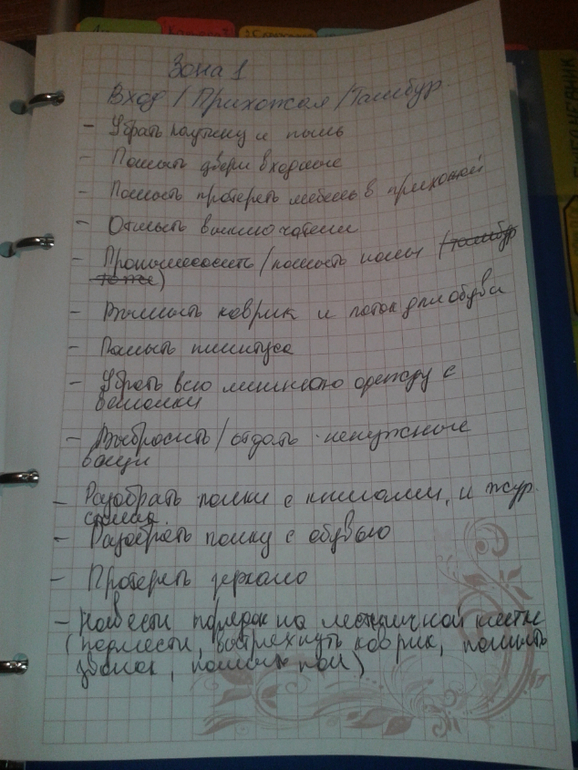 Зона 1
Вход / Прихожая / Тамбур.
- Убрать паутину и пыль
- Помыть двери входные
- Помыть протереть мебель в прихожей
- Отмыть выключатели
- Пропылесосить / помыть полы (тамбур
тоже)
- Вымыть коврик и лоток для обуви
- Помыть плинтуса
- Убрать всю лишнюю одежду с
вешалки
- Выбросить / отдать ненужные
вещи
- Разобрать полки с книгами, и жур-
- Разобрать полку с обувью
- Протереть зеркало
- Навести порядок на лестничной клетке
(подмести, вытряхнуть коврик, помыть
звонок, помыть пол)